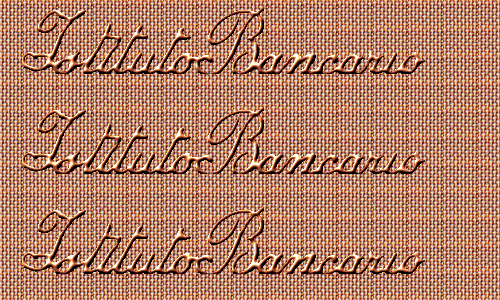 Istituto Bancario
Istituto Bancario
Istituto Bancario